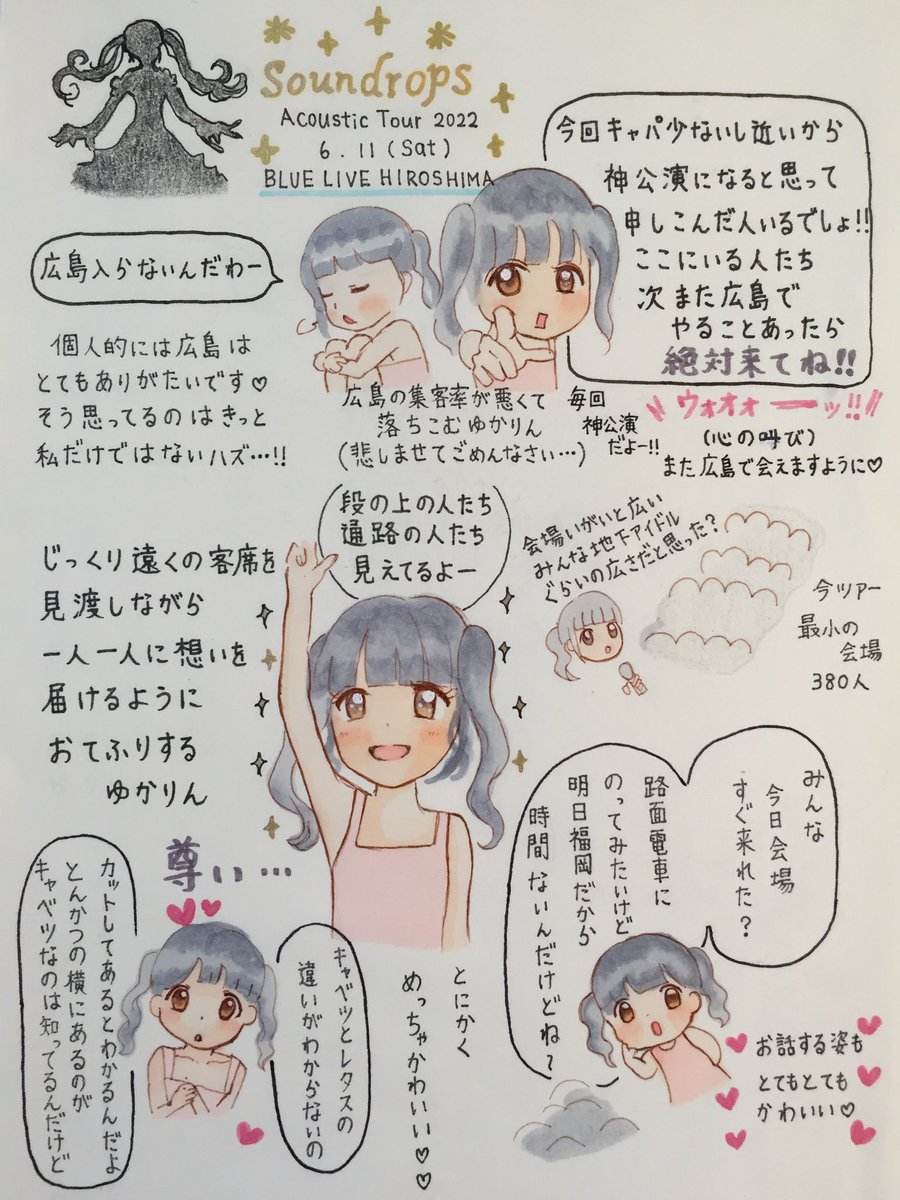 Soundrops
Acoustic Tour 2022
6.11(Sat)
BLUE LIVE HIROSHIMA
今回キャパ少ないし近いから
神公演になると思って
申しこんだ人いるでしょ!!
ここにいる人たち
次また広島で
やることあったら
絶対来てね!!
広島入らないんだわー
個人的には広島は
とてもありがたいです♡
そう思ってるのはきっと
私だけではないハズ…!!
広島の集客率が悪くて
落ちこむゆかりん
(悲しませてごめんなさい…)
毎回
神公演
だよー!!
ウォオォーーッ!!
(心の叫び)
また広島で会えますように♡
段の上の人たち
通路の人たち
見えてるよー
会場いがいと広い
みんな地下アイドル
ぐらいの広さだと思った?
今ツアー
最小の
会場
380人
じっくり遠くの客席を
見渡しながら
一人一人に想いを
届けるように
おてふりする
ゆかりん
尊い…
みんな
今日会場
すぐ来れた?
路面電車に
のってみたいけど
明日福岡だから
時間ないんだけどね?
お話する姿も
とてもとても
かわいい♡
とにかく
めっちゃかわいい♡♡
キャベツとレタスの
違いがわからないの
カットしてあるとわかるんだよ
とんかつの横にあるのが
キャベツなのは知ってるんだけど